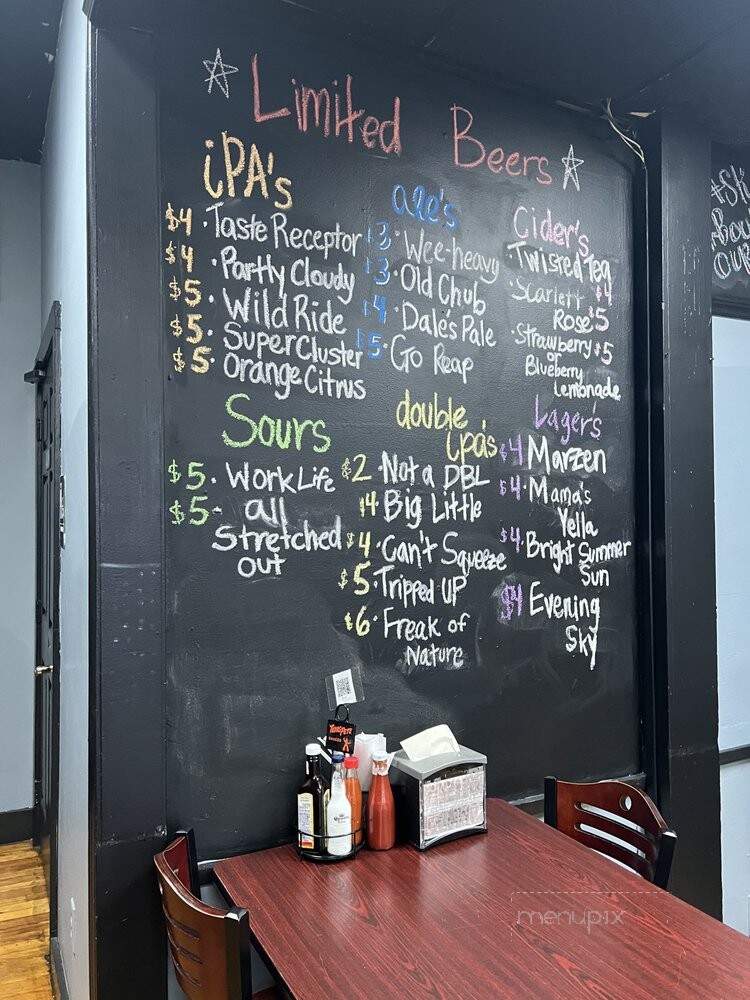 Limited Beers
iPA's
$4 · Taste Receptor
$4 · Partly Cloudy
$5 · Wild Ride
$5 · Super Cluster
$5 · Orange Citrus
ale's
$3 · Wee-heavy
$3 · Old Chub
$4 · Dale's Pale
$5 · Go Reap
Cider's
· Twisted Tea
$4
· Scarlett
Rose $5
· Strawberry $5
or
Blueberry
Lemonade
Sours
$5 · Work Life
$5 - all
Stretched
out
double
ipa's
$2 · Not a DBL
$4 · Big Little
$4 · Can't Squeeze
$5 · Tripped UP
$6 · Freak of
Nature
Lager's
$4 Marzen
$4 · Mama's
Yella
$4 · Bright Summer
Sun
$4 Evening
Sky
About
our
menupix